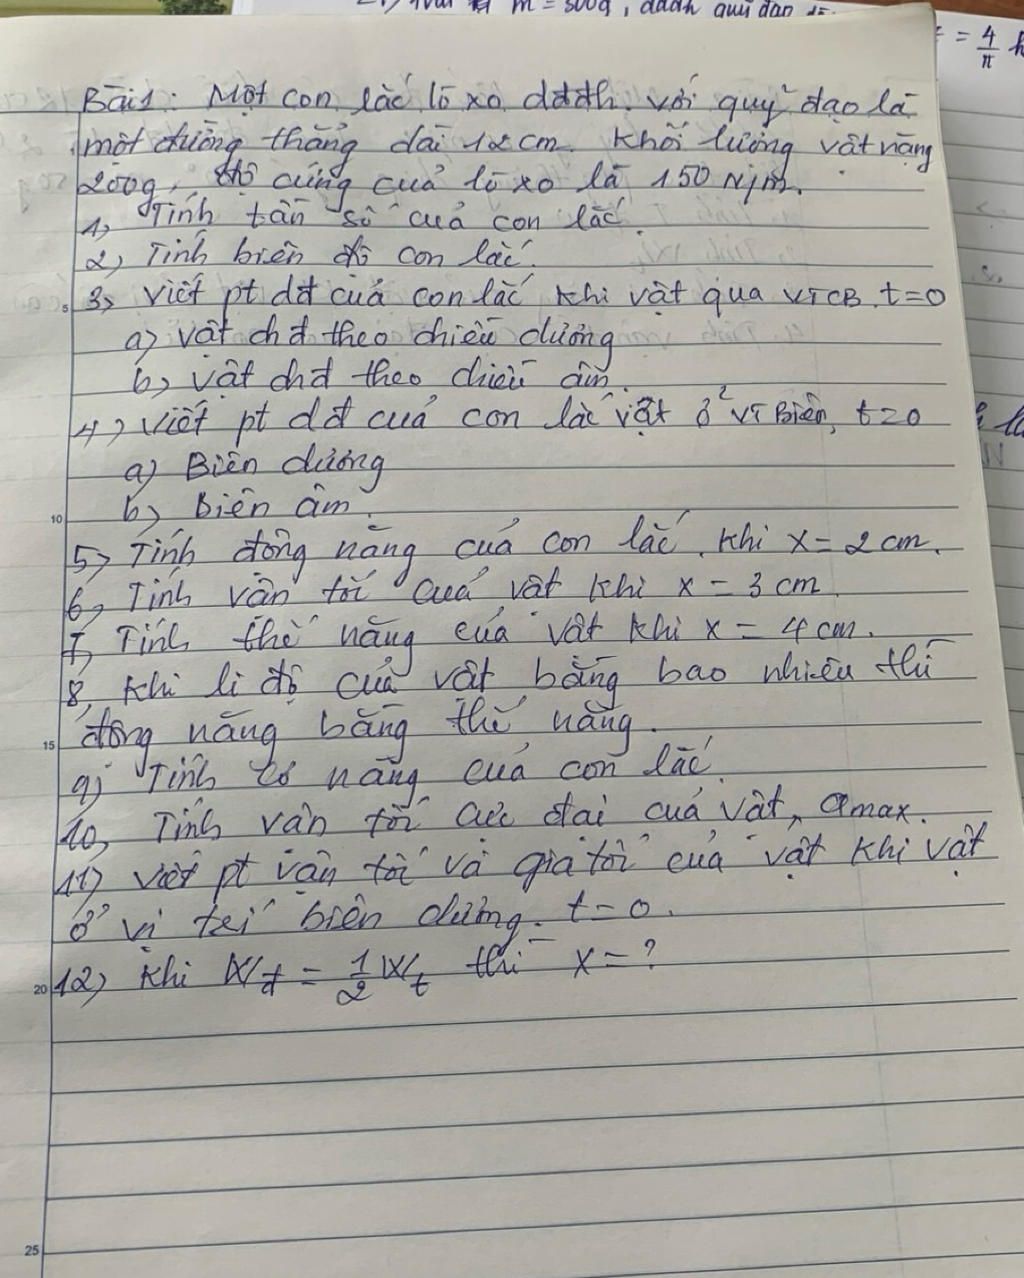 m = 500g, dđđh quỹ đạo
= 4/π
Bài 1: Một con lắc lò xo dđđh với quỹ đạo là
một đường thẳng dài 12cm. Khối lượng vật nặng
200g, độ cứng của lò xo là 150 N/m.
1, Tính tần số của con lắc.
2, Tính biên độ con lắc.
5
3, Viết pt dđ của con lắc khi vật qua VTCB, t=0
a) Vật chđ theo chiều dương
b, Vật chđ theo chiều âm.
4, Viết pt dđ của con lắc vật ở VT Biên, t=0
a) Biên dương
10
b) Biên âm.
5, Tính động năng của con lắc. khi x = 2 cm.
6, Tính vận tốc của vật khi x = 3 cm.
7, Tính thế năng của vật khi x = 4 cm.
8, Khi li độ của vật bằng bao nhiêu thì
15
động năng bằng thế năng.
9, Tính cơ năng của con lắc.
10, Tính vận tốc cực đại của vật, amax.
11) Viết pt vận tốc và gia tốc của vật khi vật
ở vị trí biên dương. t=0.
20
12) Khi Wđ = 1/2 Wt thì x = ?
25